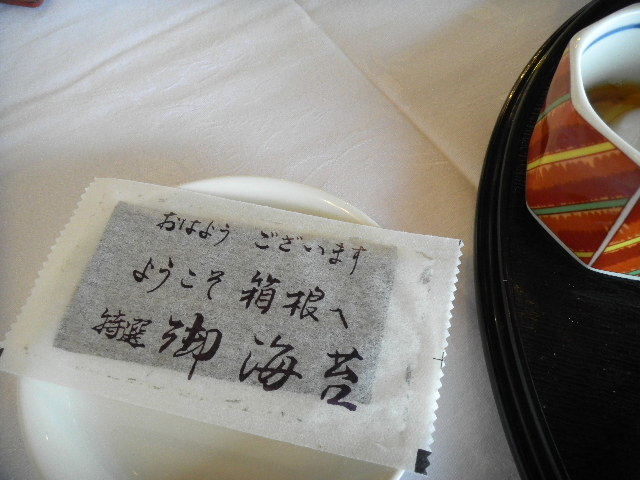 おはよう ございます
ようこそ 箱根へ
特選 御海苔